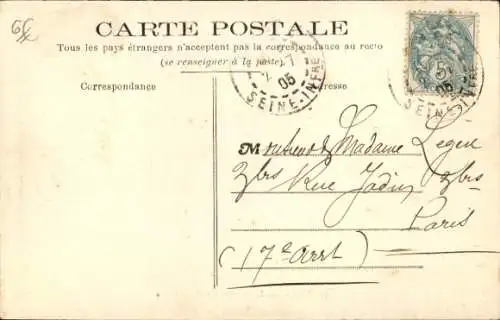 6f
CARTE POSTALE
Tous les pays étrangers n'acceptent pas la correspondance au recto
(se renseigner à la poste)
Correspondance
Adresse
05
SEINE-INFRE
5
05
SEINE-INFRE
Monsieur & Madame Léger
2bis Rue Jadin 2bis
Paris
(17e Arrt)